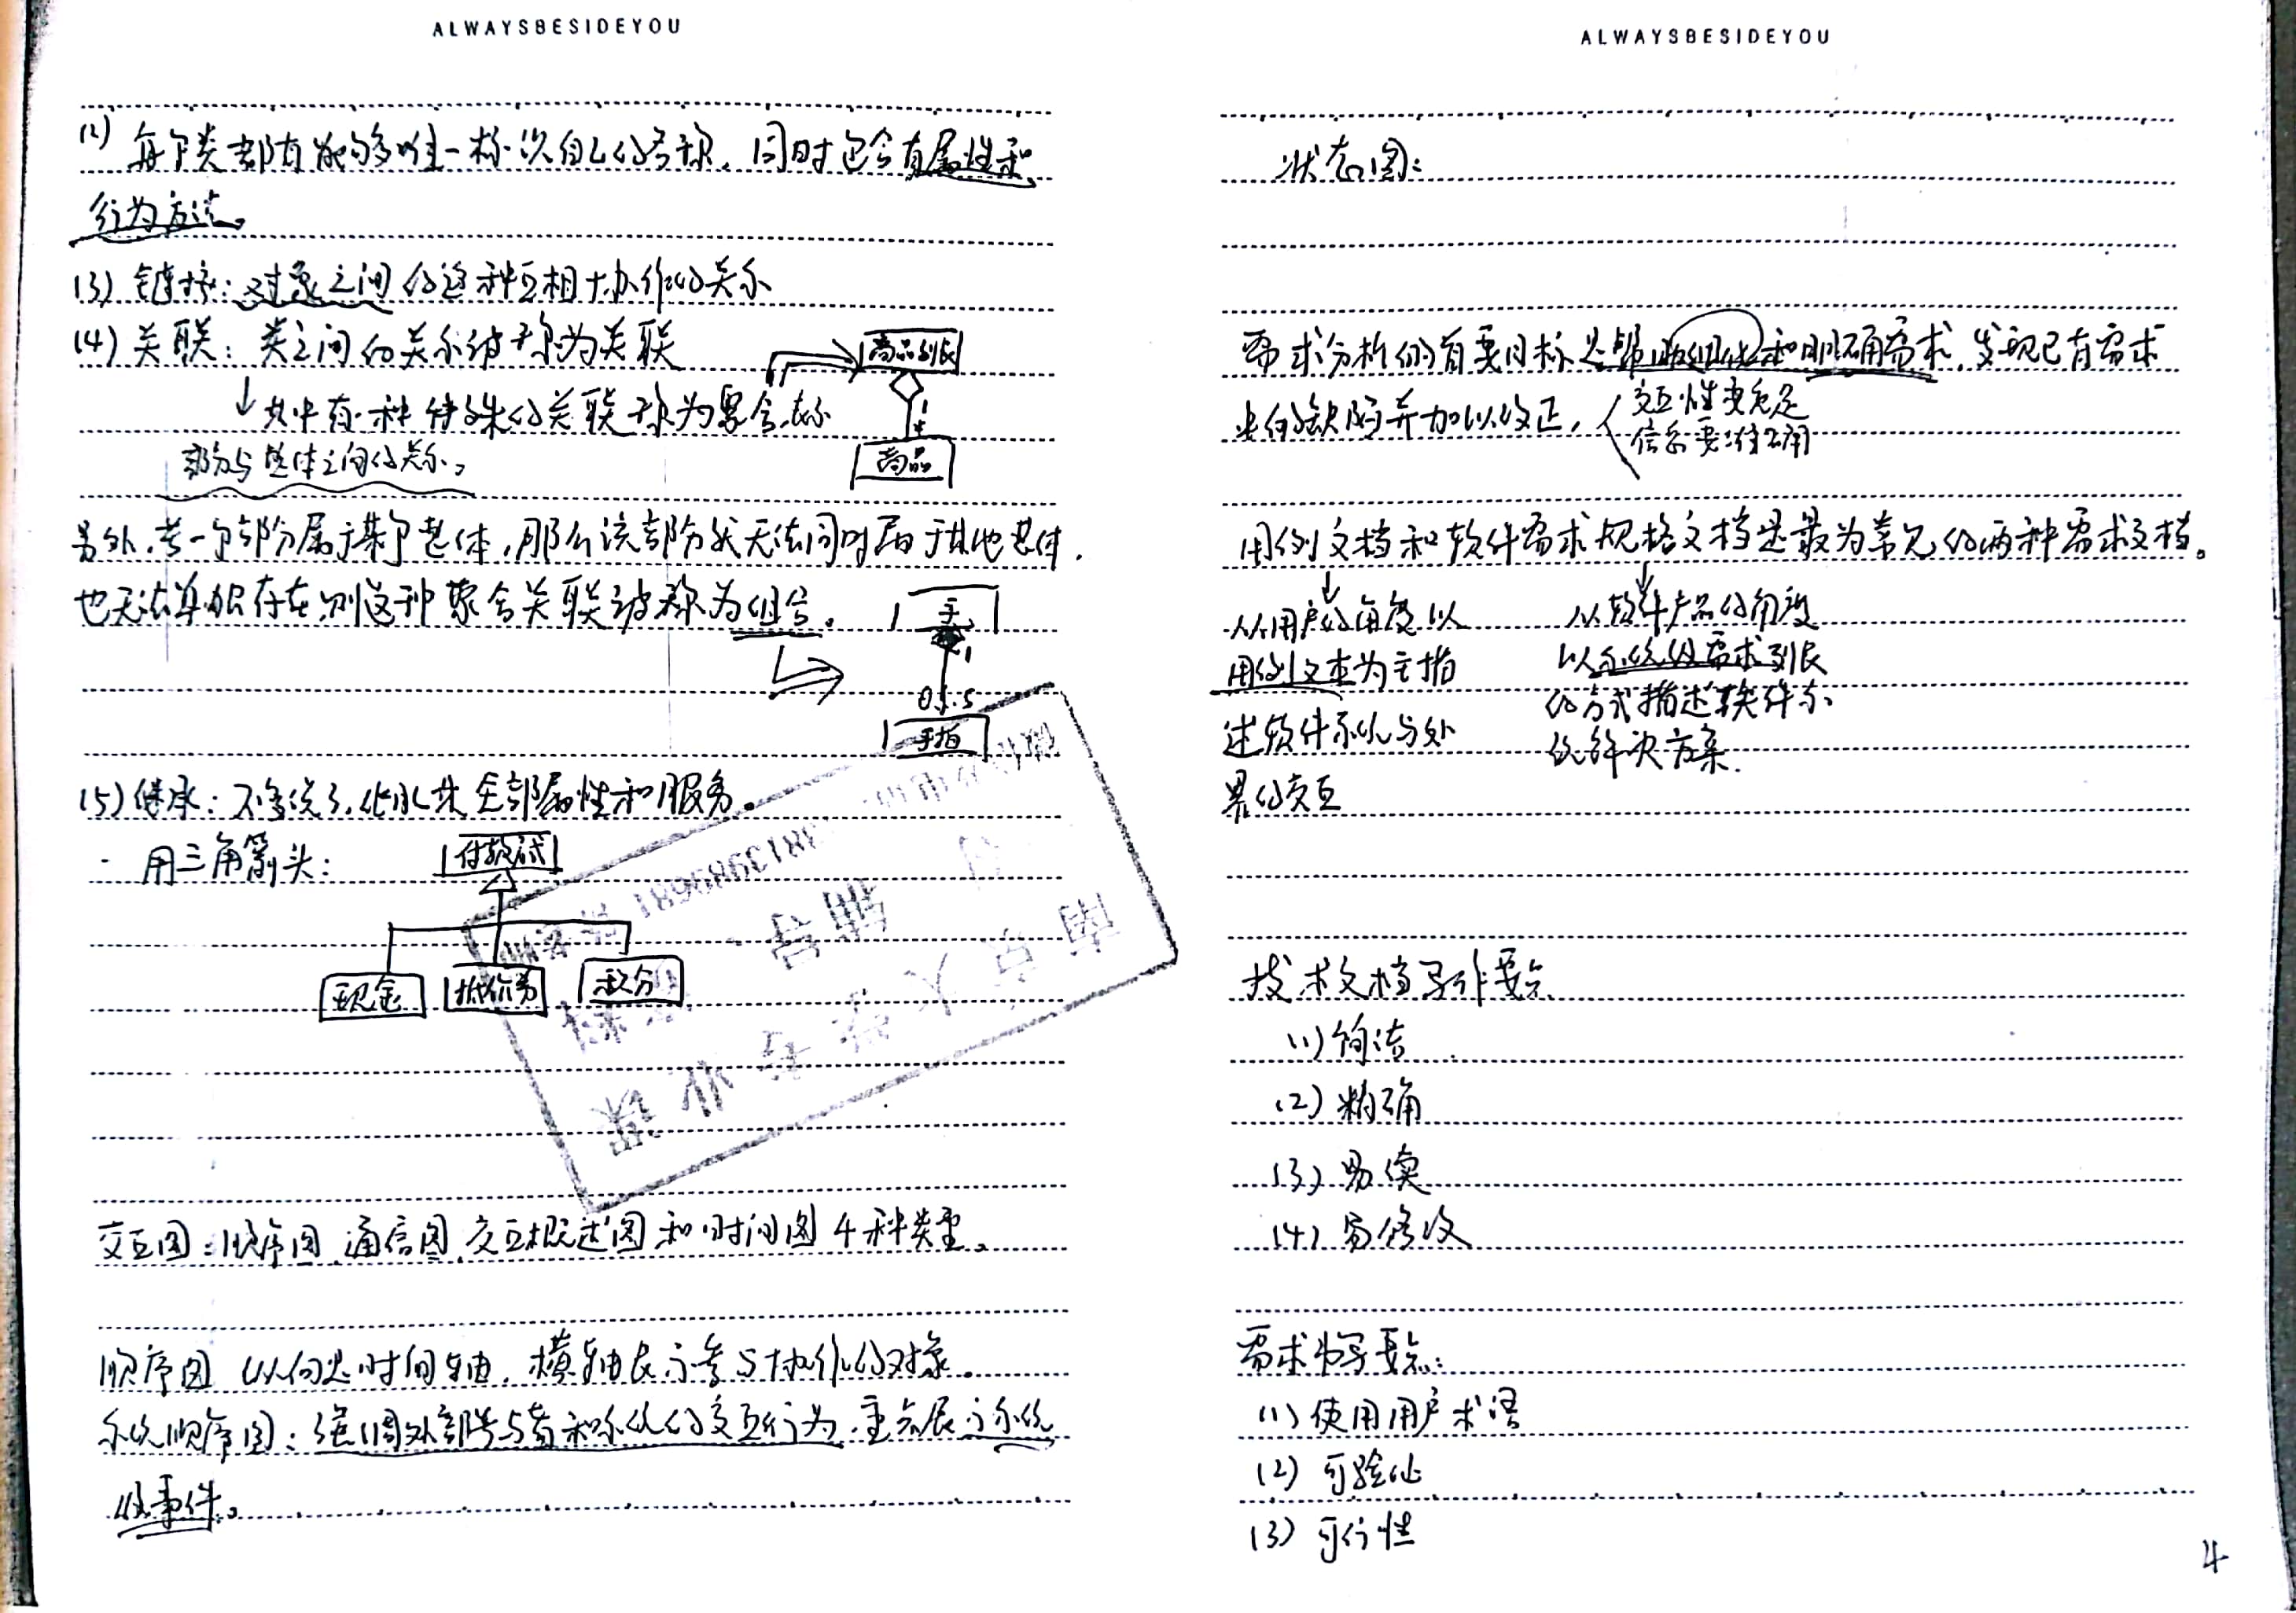 ALWAYSBESIDEYOU
(2) 每个类都有能够唯一标识自己的名称，同时包含有属性和
行为方法。
(3) 链接：对象之间的这种互相协作的关系
(4) 关联：类之间的关系被称为关联
商品列表
↓其中有一种特殊的关联称为聚合，表示
部分与整体之间的关系。
1
*
商品
另外，若一个部分属于某个整体，那么该部分就无法同时属于其他整体，
也无法单独存在，则这种聚合关联被称为组合。
手
1
0..5
手指
(5) 继承：不多说了，继承其全部属性和服务。
用三角箭头：
付款方式
现金
抵价券
积分
交互图：顺序图、通信图、交互概述图和时间图 4 种类型。
顺序图 以纵向是时间轴，横轴表示参与协作的对象。
系统顺序图：强调外部参与者和系统的交互行为，重点展示系统
级事件。
ALWAYSBESIDEYOU
状态图：
需求分析的首要目标是细化和明确需求，发现已有需求
中的缺陷并加以改正，
交互性要充足
信息要准确
用例文档和软件需求规格文档是最为常见的两种需求文档。
↓
从用户的角度以
用例文本为主描
述软件系统与外
界的交互
↓
从软件产品的角度
以系统级需求列表
的方式描述软件系
统解决方案.
技术文档写作要点
(1) 简洁
(2) 精确
(3) 易读
(4) 易修改
需求书写要点：
(1) 使用用户术语
(2) 可验证
(3) 可行性
4